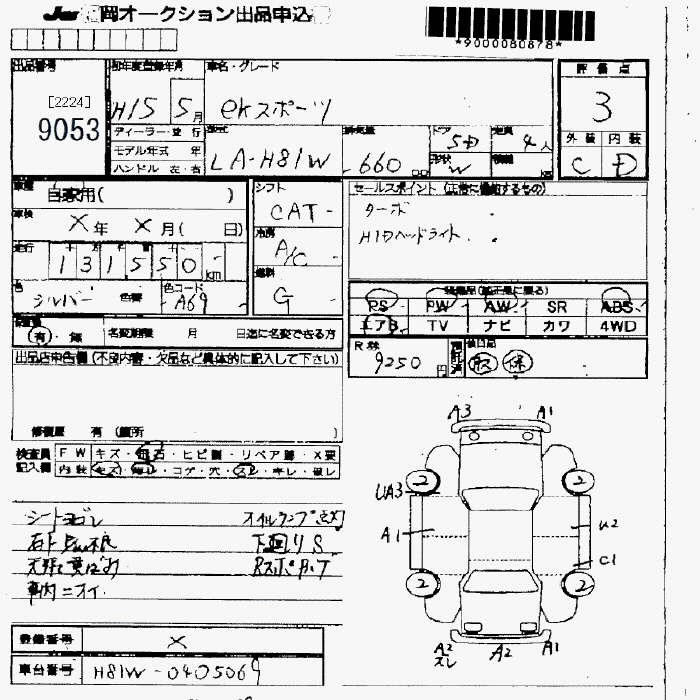 岡オークション出品申込
*9000080878*
出品番号
[2224]
9053
初年度登録年月
H15 5月
車名・グレード
eKスポーツ
評価点
3
外装 内装
C D
ディーラー・並行
モデル年式 年
ハンドル 左・右
型式
LA-H81W
排気量
660
ドア
5D
形状
W
定員
4人
積載
車歴
自家用( )
車検
X年 X月( 日)
シフト
CAT
冷房
A/C
燃料
G
走行
131550 km
色
シルバー
色替
色コード
A69
セールスポイント(正常に機能するもの)
ターボ
HIDヘッドライト
PS PW AW SR ABS
エアB TV ナビ カワ 4WD
有・無
名変期限 月 日迄に名変できる方
R券
9250円
預託済
後日品
取 保
出品店申告欄(不良内容・欠品など具体的に記入して下さい)
修復歴 有(箇所
検査員記入欄
FW キズ・飛石・ヒビ割・リペア跡・X要
内装 キズ・汚レ・コゲ・穴・スレ・キレ・破レ
シートヨゴレ
オイルランプ点灯
下回りS
車内ニオイ
A3 A1
2 2
UA3
A1
U2
C1
2 2
A2 スレ
A2
A1
登録番号
X
車台番号
H81W-0405069